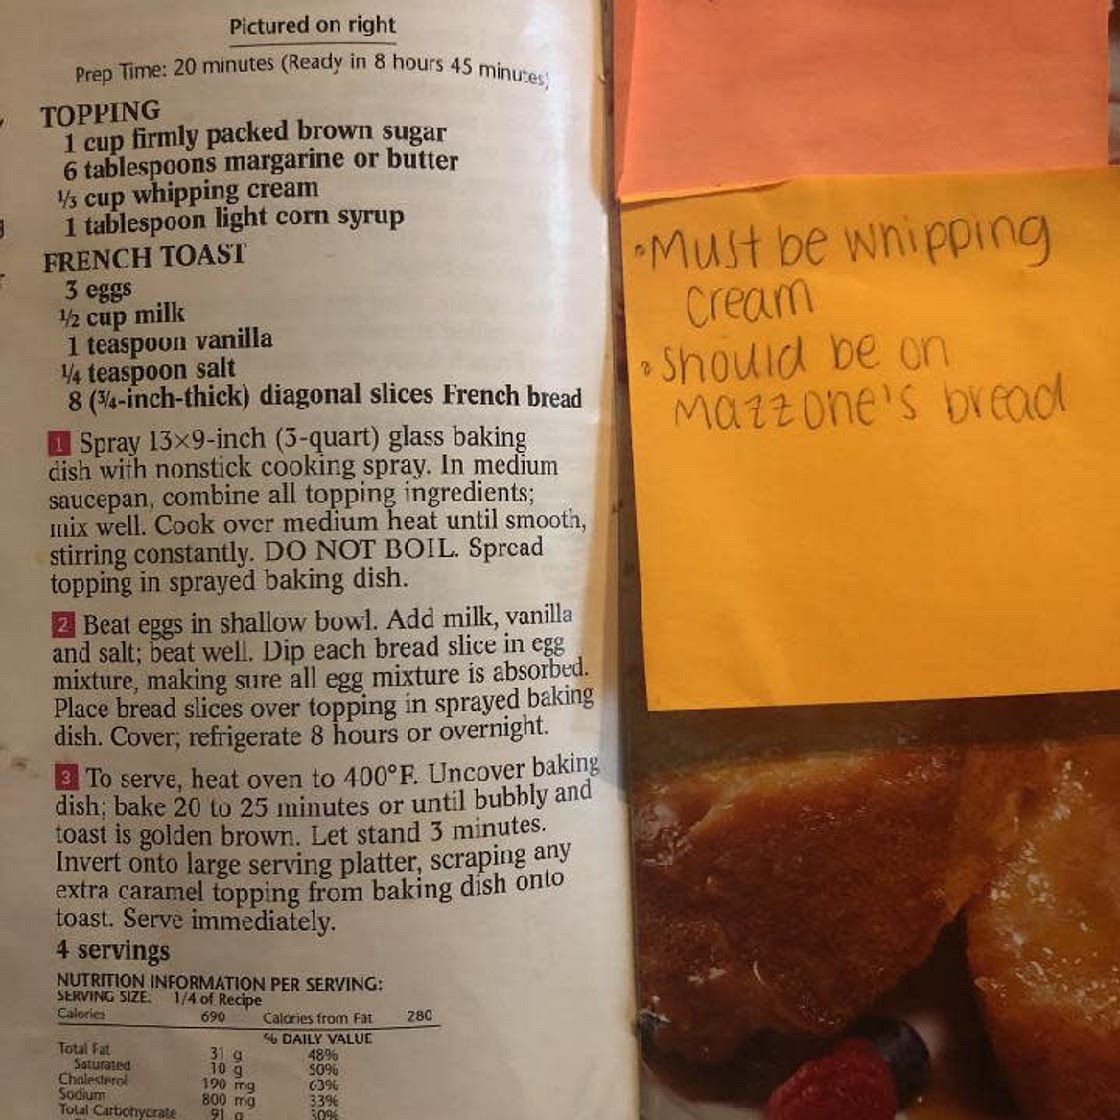 Pictured on right
Prep Time: 20 minutes (Ready in 8 hours 45 minutes)
TOPPING
1 cup firmly packed brown sugar
6 tablespoons margarine or butter
⅓ cup whipping cream
1 tablespoon light corn syrup
FRENCH TOAST
3 eggs
½ cup milk
1 teaspoon vanilla
¼ teaspoon salt
8 (¾-inch-thick) diagonal slices French bread
1 Spray 13×9-inch (3-quart) glass baking
dish with nonstick cooking spray. In medium
saucepan, combine all topping ingredients;
mix well. Cook over medium heat until smooth,
stirring constantly. DO NOT BOIL. Spread
topping in sprayed baking dish.
2 Beat eggs in shallow bowl. Add milk, vanilla
and salt; beat well. Dip each bread slice in egg
mixture, making sure all egg mixture is absorbed.
Place bread slices over topping in sprayed baking
dish. Cover; refrigerate 8 hours or overnight.
3 To serve, heat oven to 400°F. Uncover baking
dish; bake 20 to 25 minutes or until bubbly and
toast is golden brown. Let stand 3 minutes.
Invert onto large serving platter, scraping any
extra caramel topping from baking dish onto
toast. Serve immediately.
4 servings
NUTRITION INFORMATION PER SERVING:
SERVING SIZE: 1/4 of Recipe
Calories 690 Calories from Fat 280
% DAILY VALUE
Total Fat 31 g 48%
Saturated 10 g 50%
Cholesterol 190 mg 63%
Sodium 800 mg 33%
Total Carbohydrate 91 g 30%
• Must be whipping
cream
• should be on
Mazzone's bread